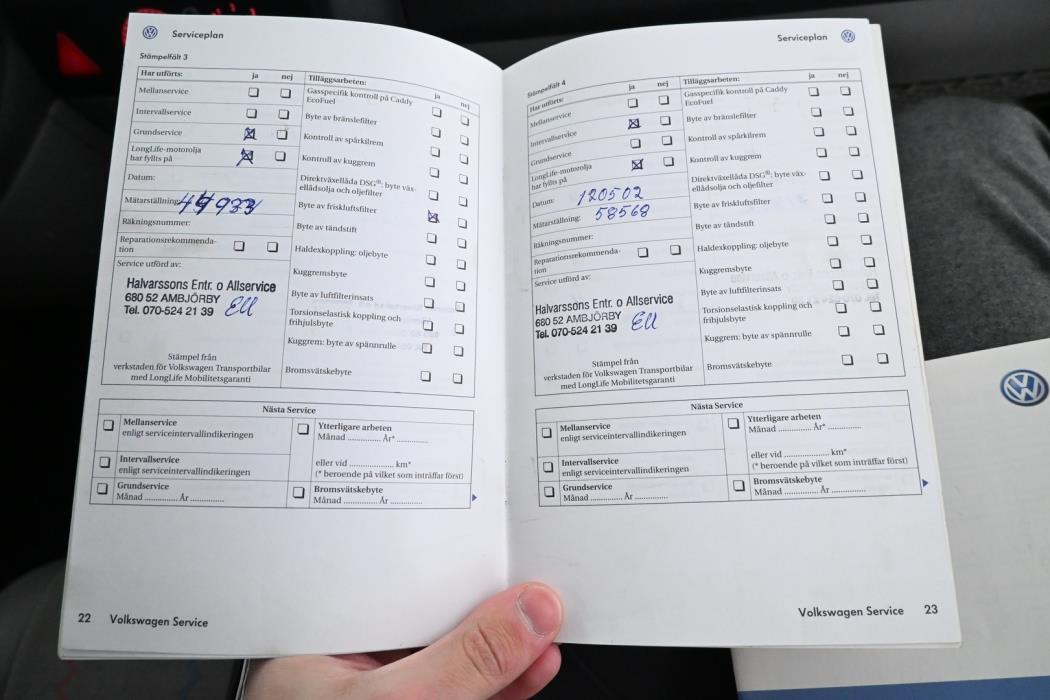 Serviceplan
Stämpelfält 3
Har utförts: ja nej
Mellanservice
Intervallservice
Grundservice
LongLife-motorolja
har fyllts på
Datum:
Mätarställning: 44933
Räkningsnummer:
Reparationsrekommenda-
tion
Service utförd av:
Halvarssons Entr. o Allservice
680 52 AMBJÖRBY
Tel. 070-524 21 39
Stämpel från
verkstaden för Volkswagen Transportbilar
med LongLife Mobilitetsgaranti
Tilläggsarbeten: ja nej
Gasspecifik kontroll på Caddy
EcoFuel
Byte av bränslefilter
Kontroll av spårkilrem
Kontroll av kuggrem
Direktväxellåda DSG®: byte väx-
ellådsolja och oljefilter
Byte av friskluftsfilter
Byte av tändstift
Haldexkoppling: oljebyte
Kuggremsbyte
Byte av luftfilterinsats
Torsionselastisk koppling och
frihjulsbyte
Kuggrem: byte av spännrulle
Bromsvätskebyte
Nästa Service
Mellanservice
enligt serviceintervallindikeringen
Intervallservice
enligt serviceintervallindikeringen
Grundservice
Månad .............. År ..............
Ytterligare arbeten
Månad .............. År* ..............
eller vid .................. km*
(* beroende på vilket som inträffar först)
Bromsvätskebyte
Månad .............. År ..............
22 Volkswagen Service
Serviceplan
Stämpelfält 4
Har utförts: ja nej
Mellanservice
Intervallservice
Grundservice
LongLife-motorolja
har fyllts på
Datum: 120502
Mätarställning: 58568
Räkningsnummer:
Reparationsrekommenda-
tion
Service utförd av:
Halvarssons Entr. o Allservice
680 52 AMBJÖRBY
Tel. 070-524 21 39
Stämpel från
verkstaden för Volkswagen Transportbilar
med LongLife Mobilitetsgaranti
Tilläggsarbeten: ja nej
Gasspecifik kontroll på Caddy
EcoFuel
Byte av bränslefilter
Kontroll av spårkilrem
Kontroll av kuggrem
Direktväxellåda DSG®: byte väx-
ellådsolja och oljefilter
Byte av friskluftsfilter
Byte av tändstift
Haldexkoppling: oljebyte
Kuggremsbyte
Byte av luftfilterinsats
Torsionselastisk koppling och
frihjulsbyte
Kuggrem: byte av spännrulle
Bromsvätskebyte
Nästa Service
Mellanservice
enligt serviceintervallindikeringen
Intervallservice
enligt serviceintervallindikeringen
Grundservice
Månad .............. År ..............
Ytterligare arbeten
Månad .............. År* ..............
eller vid .................. km*
(* beroende på vilket som inträffar först)
Bromsvätskebyte
Månad .............. År ..............
Volkswagen Service 23